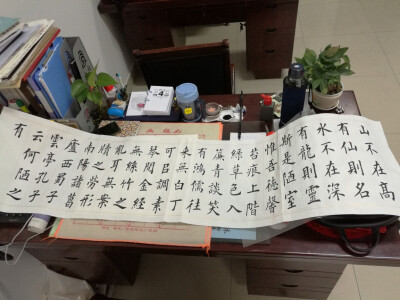 山不在高
有仙則名
水不在深
有龍則靈
斯是陋室
惟吾德馨
苔痕上階
綠草色入
簾青談笑
有鴻儒往
來無白丁
可㠯調素
琴閱金經
無絲竹之
亂耳無案
牘之勞形
南陽諸葛
廬西蜀子
雲亭孔子
云何陋之
有